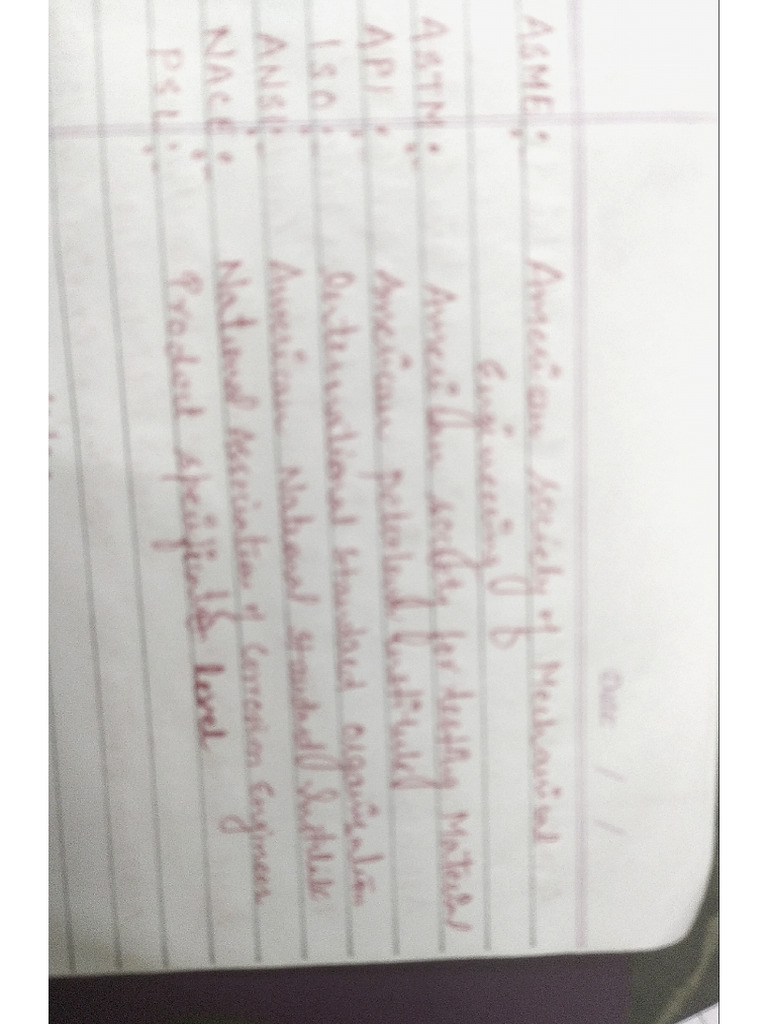 Date / /
ASME : American society of Mechanical
Engineering
ASTM : American society for testing Material
API : American petroleum institute
ISO : International standard organization
ANSI : American National standard institute
NACE : National Association of Corrosion Engineers
PSL : Product specification level